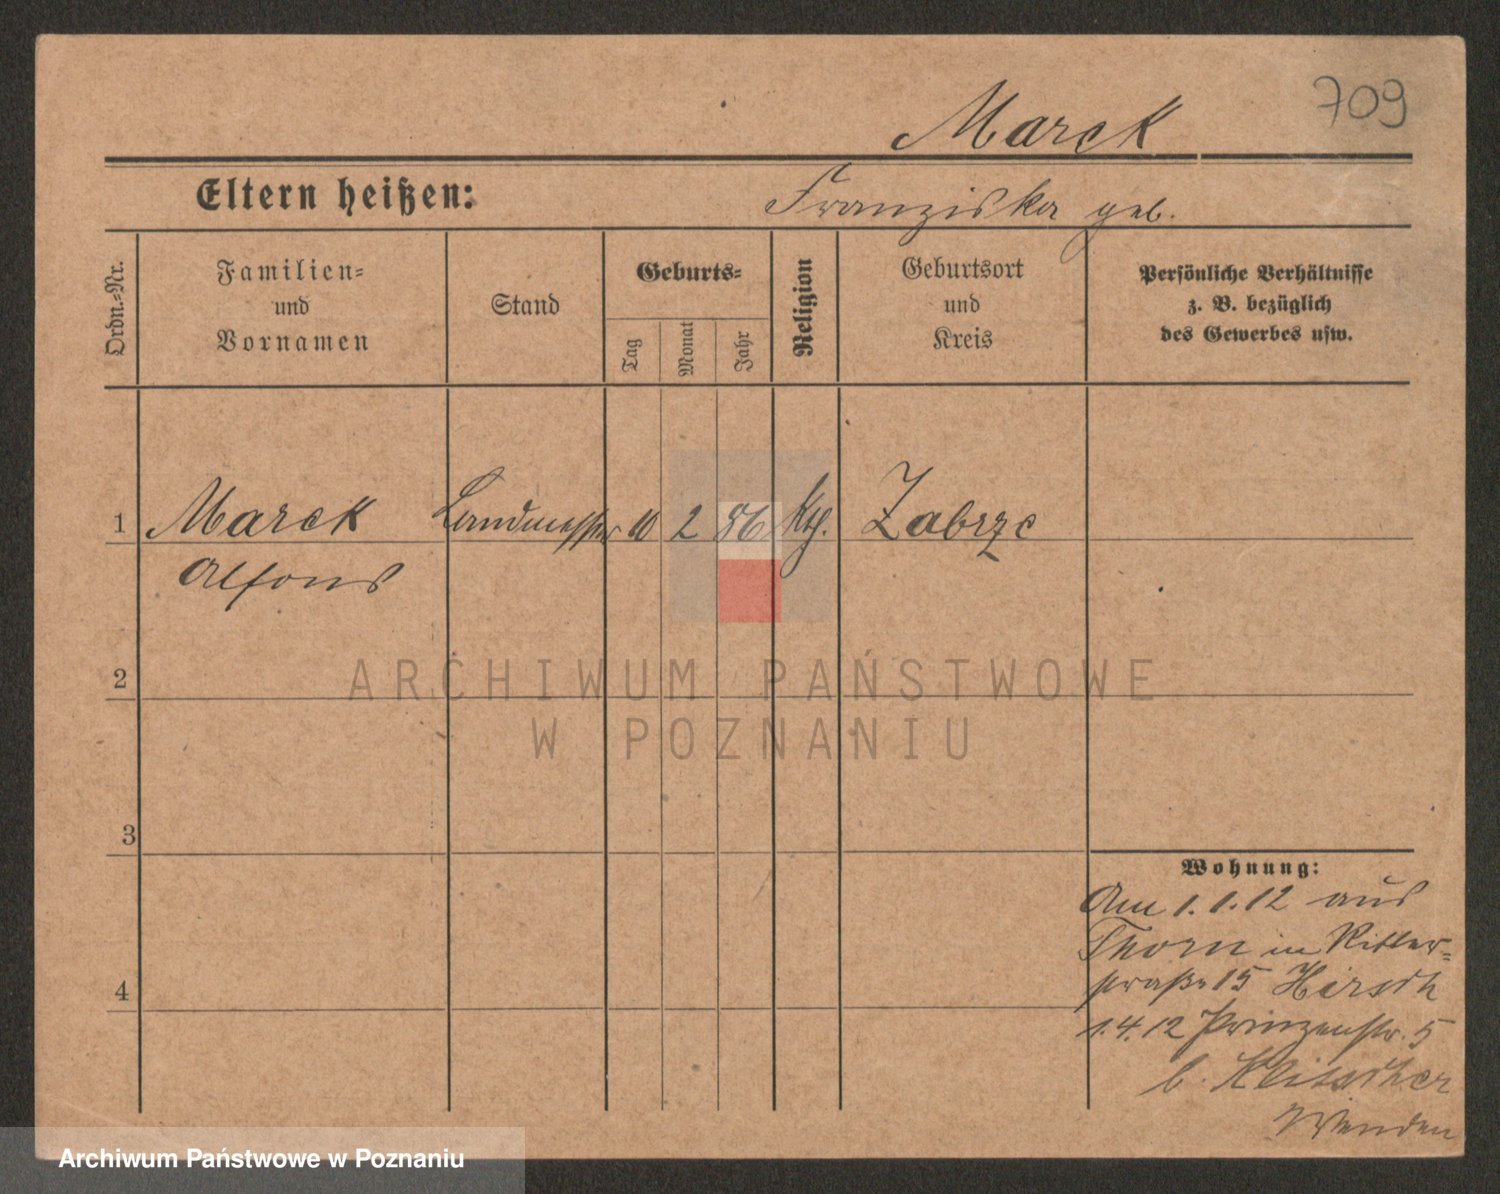 709
Marck
Eltern heißen:
Franziska geb.
Ordn.-Nr.
Familien-
und
Vornamen
Stand
Geburts-
Tag
Monat
Jahr
Religion
Geburtsort
und
Kreis
Persönliche Verhältnisse
z. B. bezüglich
des Gewerbes usw.
1 Marck Landmesser 10 2 86 Kth. Zabrze
Alfons
2
3
4
Wohnung:
Am 1.1.12 aus
Thorn in Ritter-
straße 15 Hirsch
1.4.12 Prinzenstr. 5
b. Klitscher
ARCHIWUM PAŃSTWOWE
W POZNANIU
Archiwum Państwowe w Poznaniu